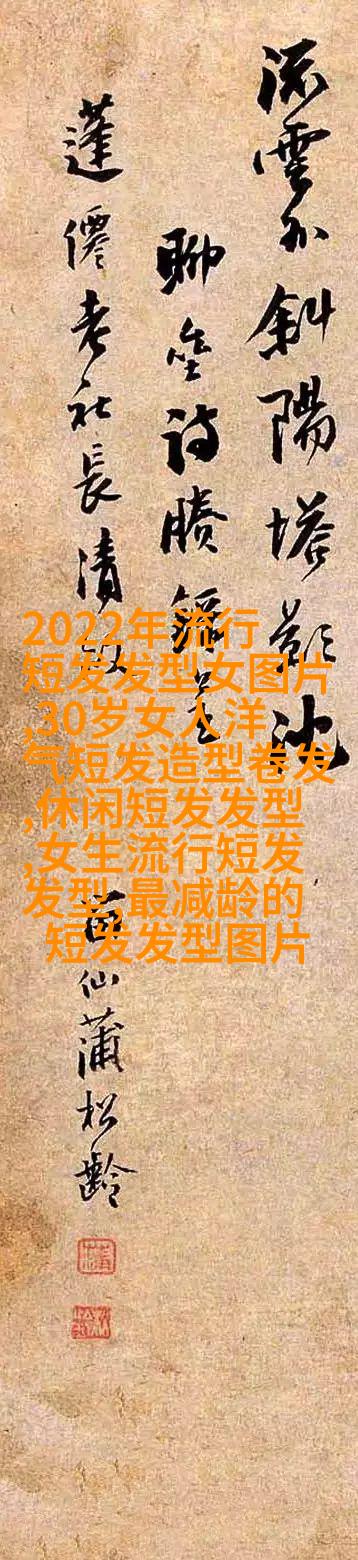 流雲外斜陽塔影沈
聊詩
蓬僊老社長清
仙蒲松齡
2022年流行
短发发型女图片
,30岁女人洋
气短发造型卷发
,休闲短发发型
,女生流行短发
发型,最减龄的
短发发型图片